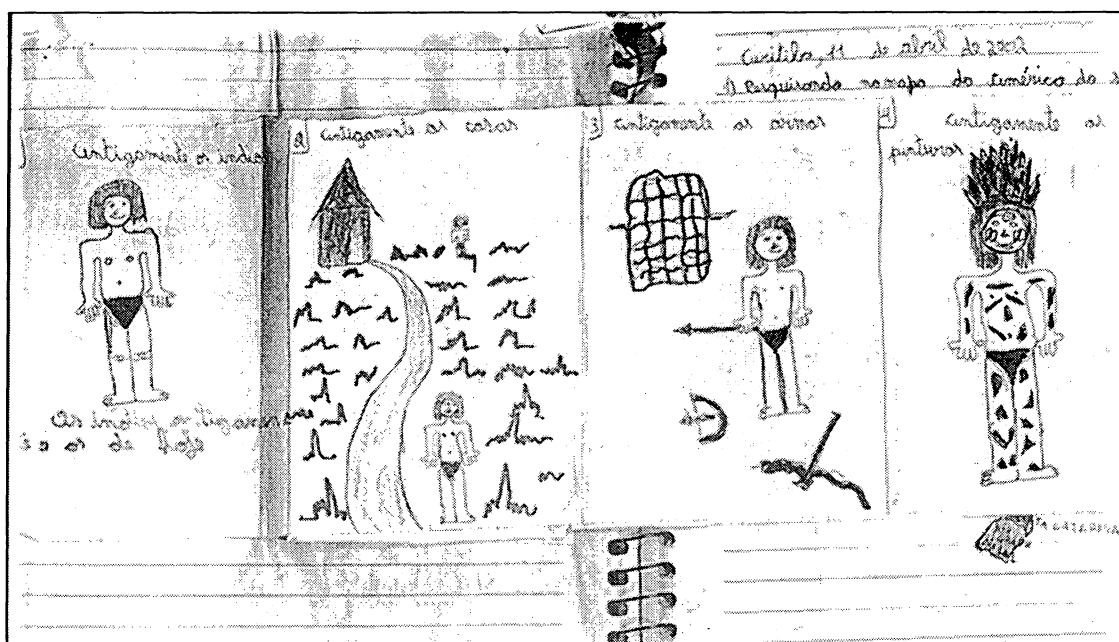 Curitiba, 11 de abril de 2002
1) Pesquisando no mapa da América do s
) Antigamente os índios
2) Antigamente as casas
3) Antigamente as armas
4) Antigamente as
pinturas